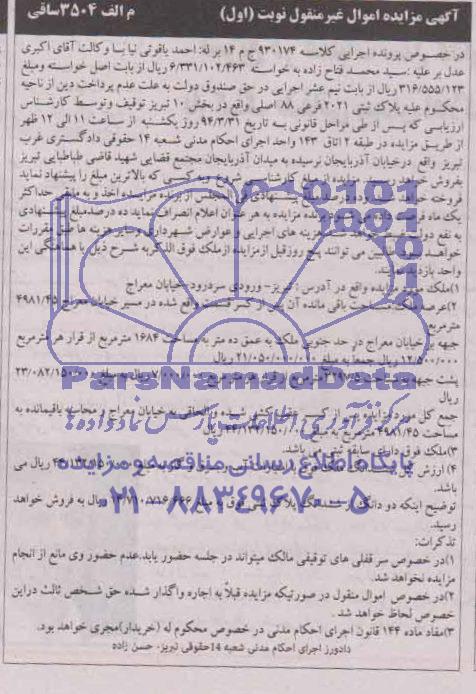 آگهی مزایده اموال غیرمنقول نوبت (اول) م الف ۳۵۰۴ساقی
در خصوص پرونده اجرایی کلاسه ۹۳۰۱۷۴ ج م ۱۴ بر له: احمد یاقوتی نیا سا وکالت آقای اکبری
عدل بر علیه :سید محمد فتاح زاده به خواسته ۶/۳۳۱/۱۰۲/۴۶۳ ریال از بابت اصل خواسته ومبلغ
۳۱۶/۵۵۵/۱۲۳ ریال از بابت نیم عشر اجرایی در حق صندوق دولت به علت عدم پرداخت دین از ناحیه
محکوم علیه پلاک ثبتی ۲۰۲۱ فرعی ۸۸ اصلی واقع در بخش ۱۰ تبریز توقیف وتوسط کارشناس
ارزیابی که پس از طی مراحل قانونی به تاریخ ۹۴/۳/۳۱ روز یکشنبه از ساعت ۱۱ الی ۱۲ ظهر
از طریق مزایده در طبقه ۲ اتاق ۱۴۳ واحد اجرای احکام مدنی شعبه ۱۴ حقوقی دادگستری غرب
تبریز واقع درخیابان آذربایجان نرسیده به میدان آذربایجان مجتمع قضایی شهید قاضی طباطبایی تبریز
بفروش خواهد رسید. مزایده از مبلغ کارشناسی شروع وبه کسی که بالاترین مبلغ را پیشنهاد نماید
فروخته خواهد شد. درصد مبلغ پیشنهادی فی المجلس از برنده مزایده اخذ و به مابقی حداکثر
یک ماه فرصت داده می شود برنده مزایده به هر عنوان اعلام انصراف نماید ده درصدمبلغ پیشنهادی
به نفع دولت هزینه های اجرایی و عوارض شهرداری هزینه ها طبق مقررات
خواهد می توانند پنج روزقبل ازمزایده ازملک فوق الذکربه شرح ذیل با هماهنگی این
واحد بازدید نمایند.
۱)ملک مورد مزایده واقع در آدرس : تبریز- ورودی سردرود- خیابان معراج
۲)عرصه ملک مساحت باقی مانده آن پس از کسر قسمت واقع شده در مسیر خیابان معراج ۴۹۸۱/۴۵
مترمربع
جبهه بر خیابان معراج در حد جنوبی ملک به عمق ده متر به مساحت ۱۶۸۴ مترمربع از قرار هر مترمربع
۱۲/۵۰۰/۰۰۰ ریال جمعا به مبلغ ۲۱/۰۵۰/۰۰۰/۰۰۰ ریال
پشت جبهه به مساحت مترمربع از قرار هر مترمربع ریال به مبلغ ۲۳/۰۸۲/۱۵۰/۰۰۰
ریال
جمع کل مورد مزایده پس از کسر والحاقی به خیابان معراج و محاسبه باقیمانده به
مساحت ۴۹۸۱/۴۵ مترمربع به مبلغ ریال
۳)ملک فوق دارای سابقه ثبتی می باشد.
۴) ارزش ریال می
باشد.
توضیح اینکه دو دانگ از ششدانگ پلاک ثبتی فوق به مبلغ ریال به فروش خواهد
رسید.
تذکرات:
۱)در خصوص سر قفلی های توقیفی مالک میتواند در جلسه حضور یابد.عدم حضور وی مانع از انجام
مزایده نخواهد شد.
۲)در خصوص اموال منقول در صورتیکه مزایده قبلاً به اجاره واگذار شده حق شخص ثالث دراین
خصوص لحاظ خواهد شد .
۳)مفاد ماده ۱۴۴ قانون اجرای احکام مدنی در خصوص محکوم له (خریدار)مجری خواهد بود.
دادورز اجرای احکام مدنی شعبه 14حقوقی تبریز- حسن زاده
ParsNamadData
مرکز فرآوری اطلاعات پارس نماد داده ها
پایگاه اطلاع رسانی مناقصه و مزایده
۰۲۱-۸۸۳۴۹۶۷۰-۵